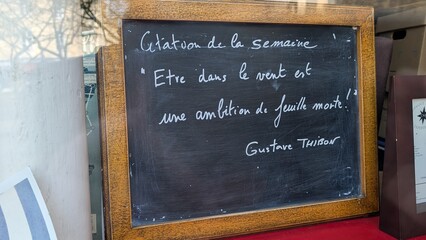 Citation de la semaine
"Etre dans le vent est
une ambition de feuille morte!"
Gustave THIBON